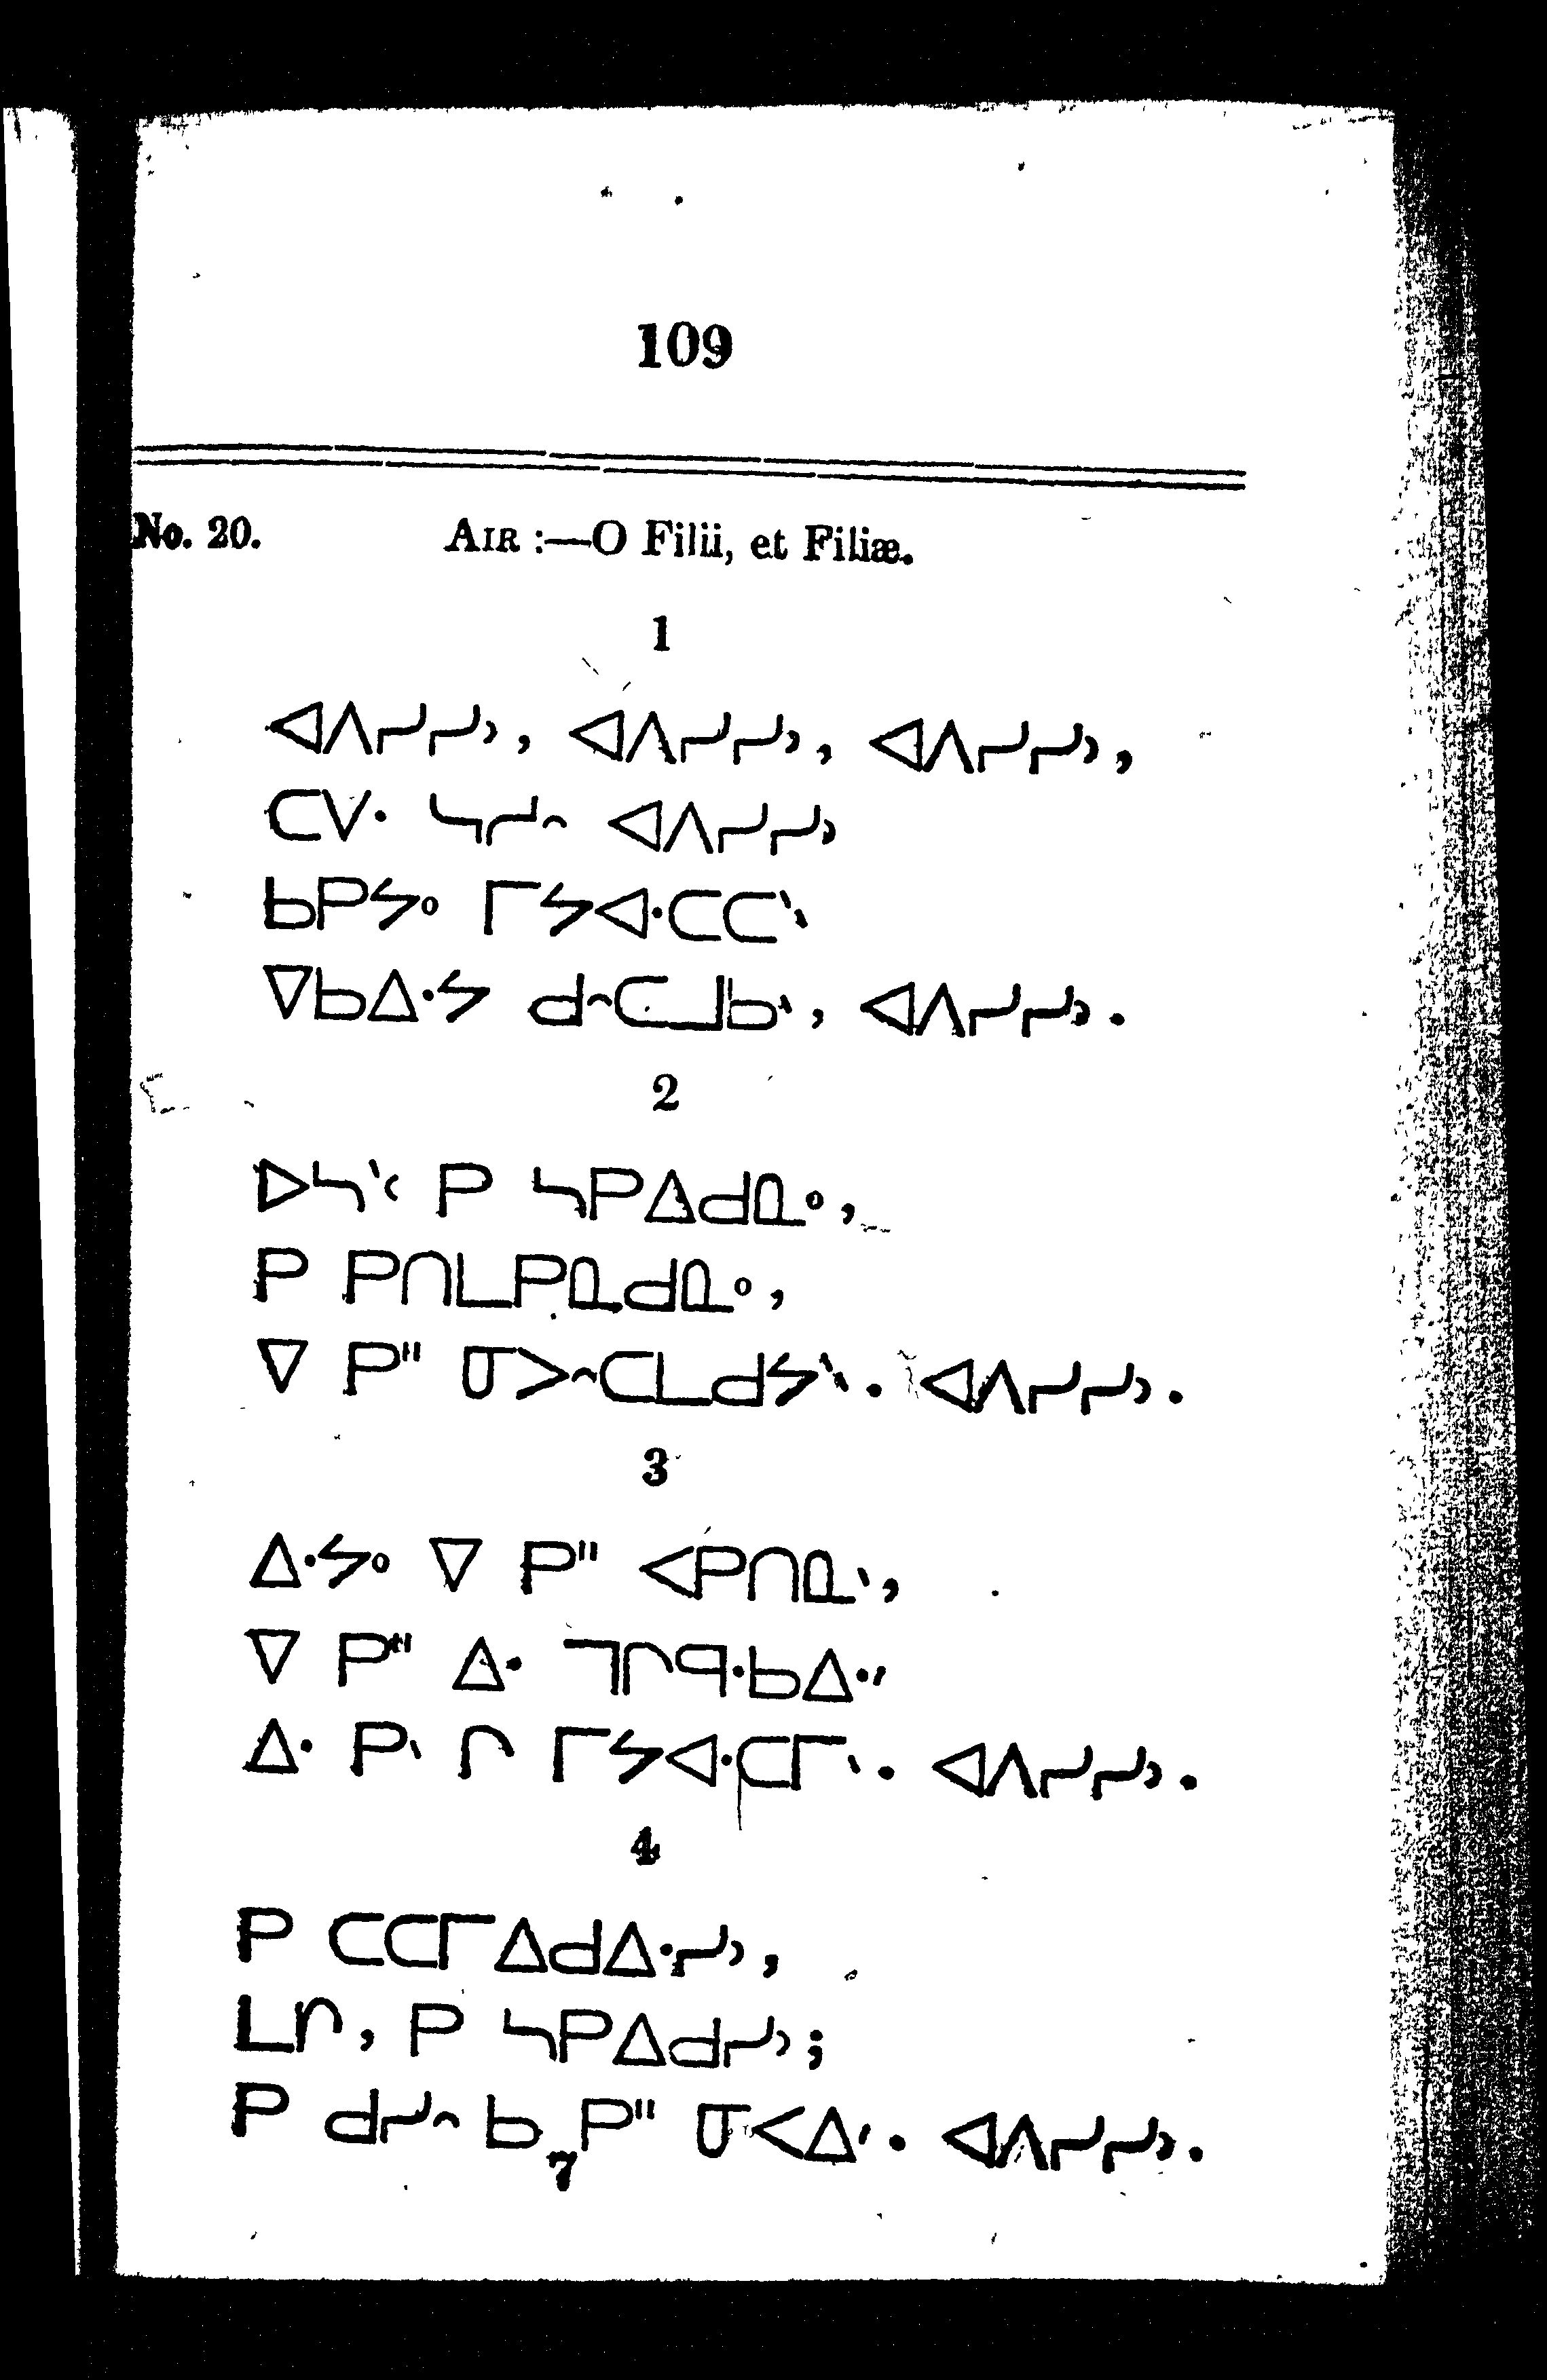 109
No. 20. AIR :—O Filii, et Filiæ.
1
ᐊᐱᓯᓯᐣ, ᐊᐱᓯᓯᐣ, ᐊᐱᓯᓯᐣ,
ᑕᐯᐧ ᓴᓯᐢ ᐊᐱᓯᓯᐣ
ᑲᑭᔭᐤ ᒥᔭᐊᐧᑕᑕᐠᐠ
ᐁᑲᐃᐧᔭ ᑯᐢᑕᒧᑲᐠ, ᐊᐱᓯᓯᐣ.
2
ᐅᓴᐠᐸ ᑭ ᓴᑭᐃᑯᓇᐤ,
ᑭ ᑭᑎᒪᑭᓇᑯᓇᐤ,
ᐁ ᑭᐦ ᓂᐳᐢᑕᒪᑯᔭᐠᐠ. ᐊᐱᓯᓯᐣ.
3
ᐃᐧᔭᐤ ᐁ ᑭᐦ ᐸᑭᑎᓇᐠ,
ᐁ ᑭᐦ ᐃᐧ ᒣᒋᑫᐧᑲᐃᐧᐟ
ᐃᐧ ᑭᐠ ᒋ ᒥᔭᐊᐧᑕᒥᐠ. ᐊᐱᓯᓯᐣ.
4
ᑭ ᑕᑕᒥᐃᑯᐃᐧᓯᐣ,
ᒪᒋ, ᑭ ᓴᑭᐃᑯᓯᐣ;
ᑭ ᑯᓯᐢ ᑲ ᑭᐦ ᓂᐸᐃᐟ. ᐊᐱᓯᓯᐣ.
7